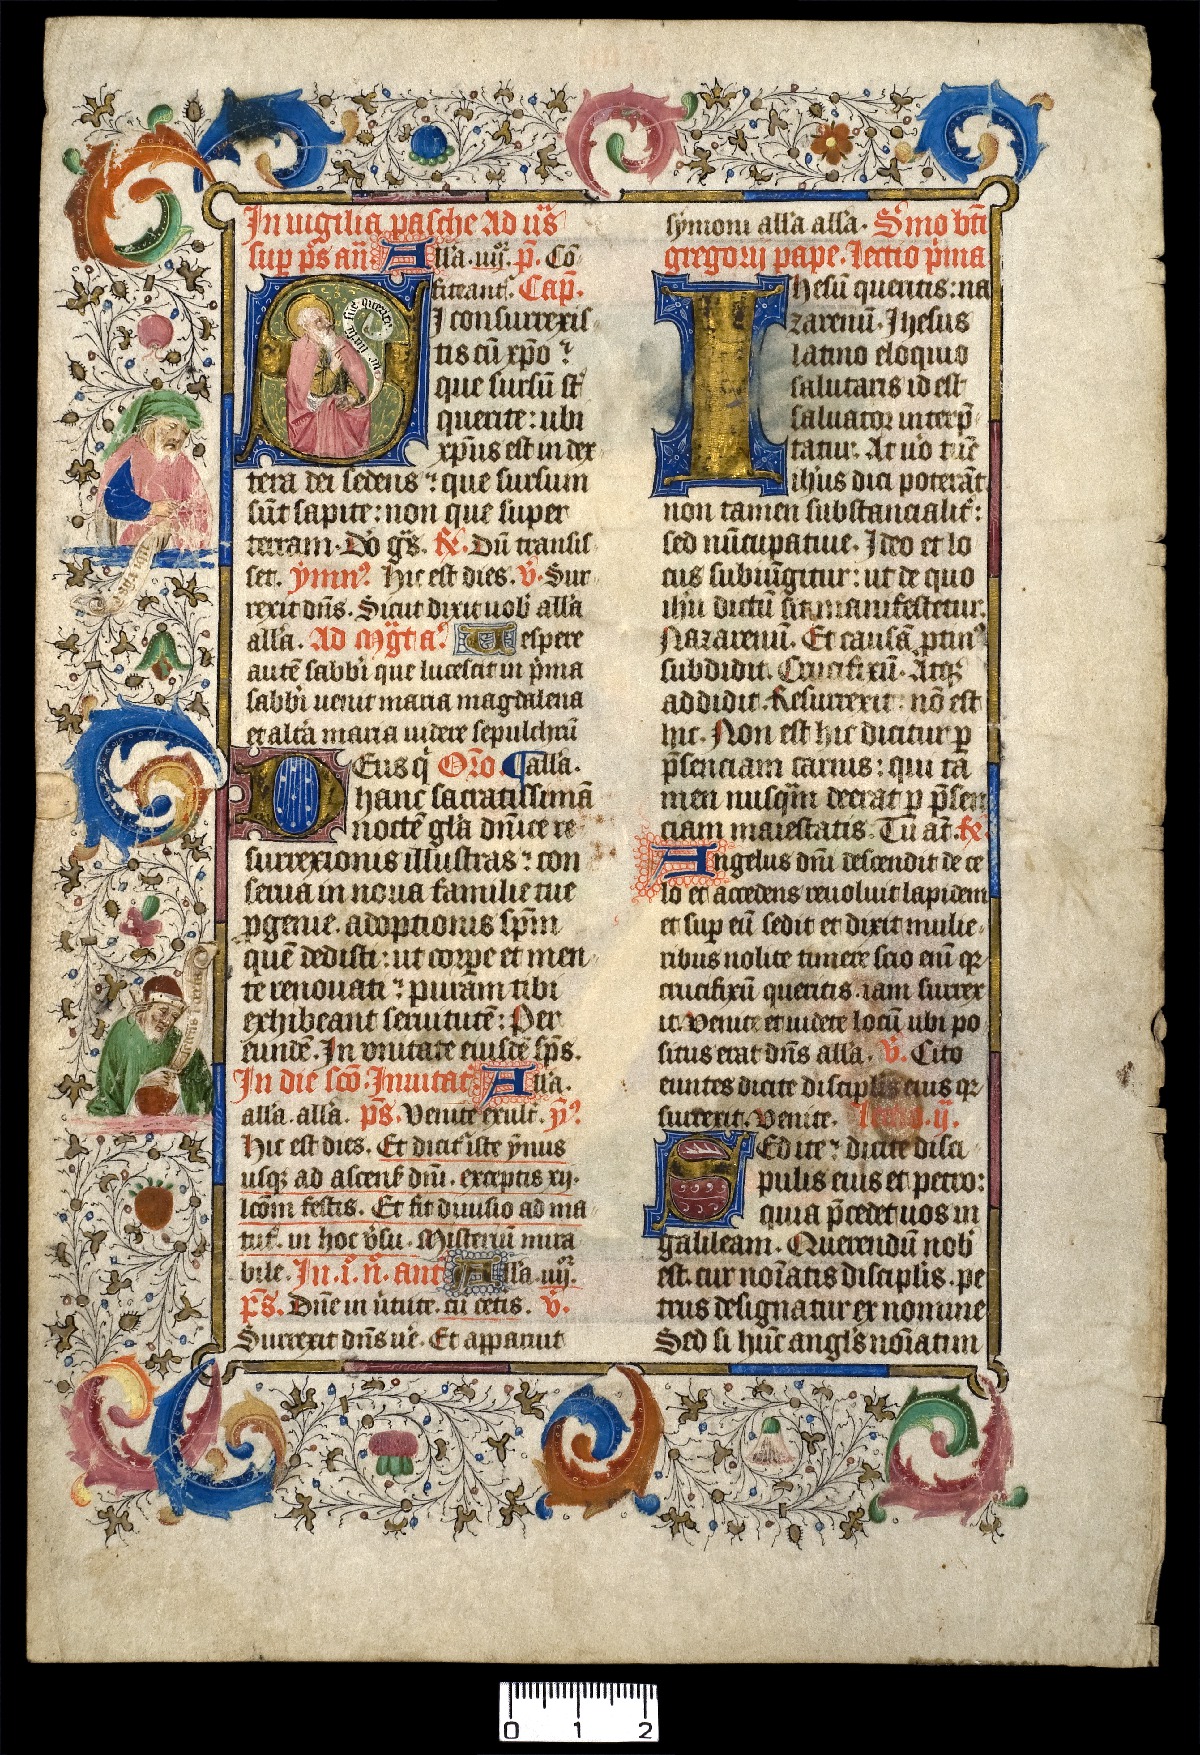 In vigilia pasche Ad ūs̄
sup p̄s an̄ Alla . iiij . p̄. Cō
fiteant̄. Cap̄.
I consurrexis
tis cū xp̄o ⁊
que sursū st̄
querite : ubi
xp̄us est in dex
tera dei sedens ⁊ que sursum
sūt sapite : non que super
terram . Dō gr̄s. R̄. Dū transis
set . ymn9 . Hic est dies . V̄. Sur
rexit dn̄s . Sicut dixit uob̄ all̄a
all̄a . Ad mḡt a9 . Uespere
autē sabb̄i que lucescit in p̄ma
sabb̄i uenit maria magdalena
et alt̄a maria uidere sepulchrū
Deus q̄ Or̄o . all̄a .
hanc sacratissimā
noctē gl̄a dn̄ice re
surrexionis illustras ⁊ con
serua in noua familie tue
ꝓgenie . adoptionis sp̄m
quē dedisti : ut corꝑe et men
te renouati ⁊ puram tibi
exhibeant seruitutē : Per
eundē . In vnitate eiusdē sp̄s .
In die sc̄o . Inuitat̄ Alla .
all̄a . all̄a . p̄s . Venite exult̄ . ẏ9
Hic est dies . Et dicit̄ iste ẏmnus
usqꝫ ad ascens̄ dn̄i . exceptis xij .
lc̄om festis . Et fit diuisio ad ma
tut̄ . in hoc v̄su . Misteriū mira
bile . In . i . n̄ . ant̄ Alla . iiij .
p̄s . Dn̄e in ūtute . cū cetis . V̄ .
Surrexit dn̄s ue . Et apparuit
sẏmoni all̄a all̄a . S̄mo bt̄i
gregorij pape . lectio p̄ma
Ihesū queritis : na
zarenū . Ihesus
latino eloquio
salutaris id est
saluator interp̄
tatur . At ūo tūc
ih̄us dici poterāt
non tamen substancialit̄ :
sed nūcupatiue . Ideo et lo
cus subiūgitur : ut de quo
ih̄u dictū sit manifestetur .
Nazarenū . Et causā ꝓtin9
subdidit . Crucifixū . Atqꝫ
addidit . Resurrexit : nō est
hic . Non est hic dicitur ꝑ
p̄senciam carnis : qui ta
men nusq̄m deerat ꝑ p̄sen
ciam maiestatis . Tū at̄ . R̄ .
Angelus dn̄i descendit de ce
lo et accedens reuoluit lapidem
et sup eū sedit et dixit mulie
ribus nolite timere scio eni̅ qꝛ
crucifixū queritis . iam surrex
it . Venite et uidete locū ubi po
situs erat dn̄s all̄a . V̄ . Cito
euntes dicite discipl̄is eius qꝛ
surrexit . Venite . lectio . ij .
Sed ite ⁊ dicite disci
pulis eius et petro :
quia p̄cedet uos in
galileam . Querendū nob̄
est . cur noīatis discipl̄is . pe
trus designatur ex nomine
Sed si hūc angl̄s noīatim